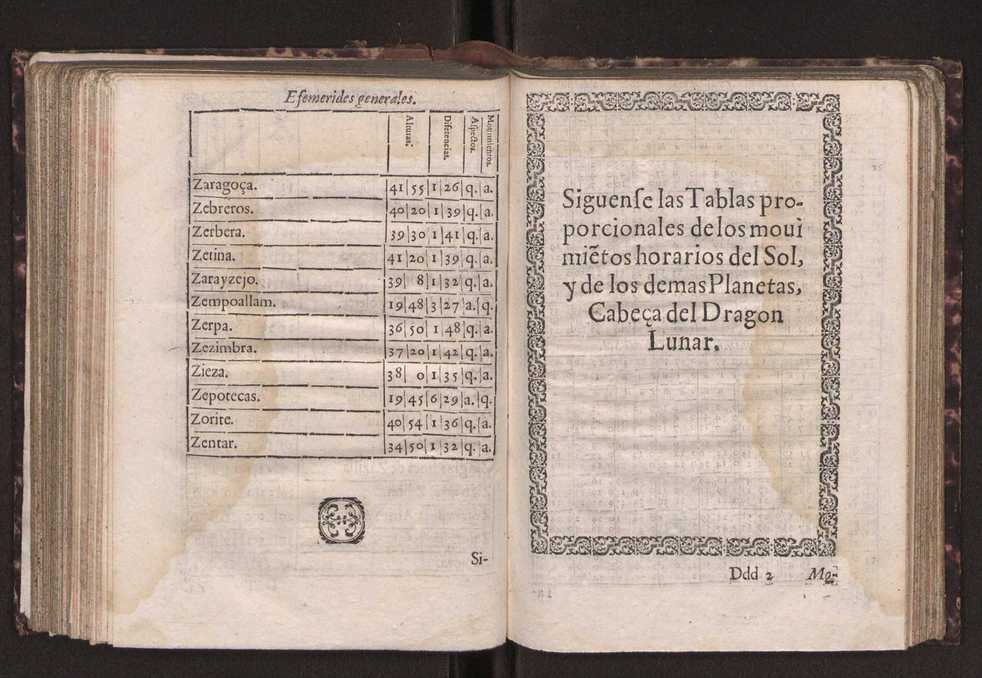 Efemerides generales.
Alturas. Diferencias. Aspectos. Mouimientos.
Zaragoça. 41 55 1 26 q. a.
Zebreros. 40 20 1 39 q. a.
Zerbera. 39 30 1 41 q. a.
Zetina. 41 20 1 39 q. a.
Zarayzejo. 39 8 1 32 q. a.
Zempoallam. 19 48 3 27 a. q.
Zerpa. 36 50 1 48 q. a.
Zezimbra. 37 20 1 42 q. a.
Zieza. 38 0 1 35 q. a.
Zepotecas. 19 45 6 29 a. q.
Zorite. 40 54 1 36 q. a.
Zentar. 34 50 1 32 q. a.
Si-
Siguenſe las Tablas pro-
porcionales de los moui
miẽtos horarios del Sol,
y de los demas Planetas,
Cabeça del Dragon
Lunar.
Ddd 2 Mo-